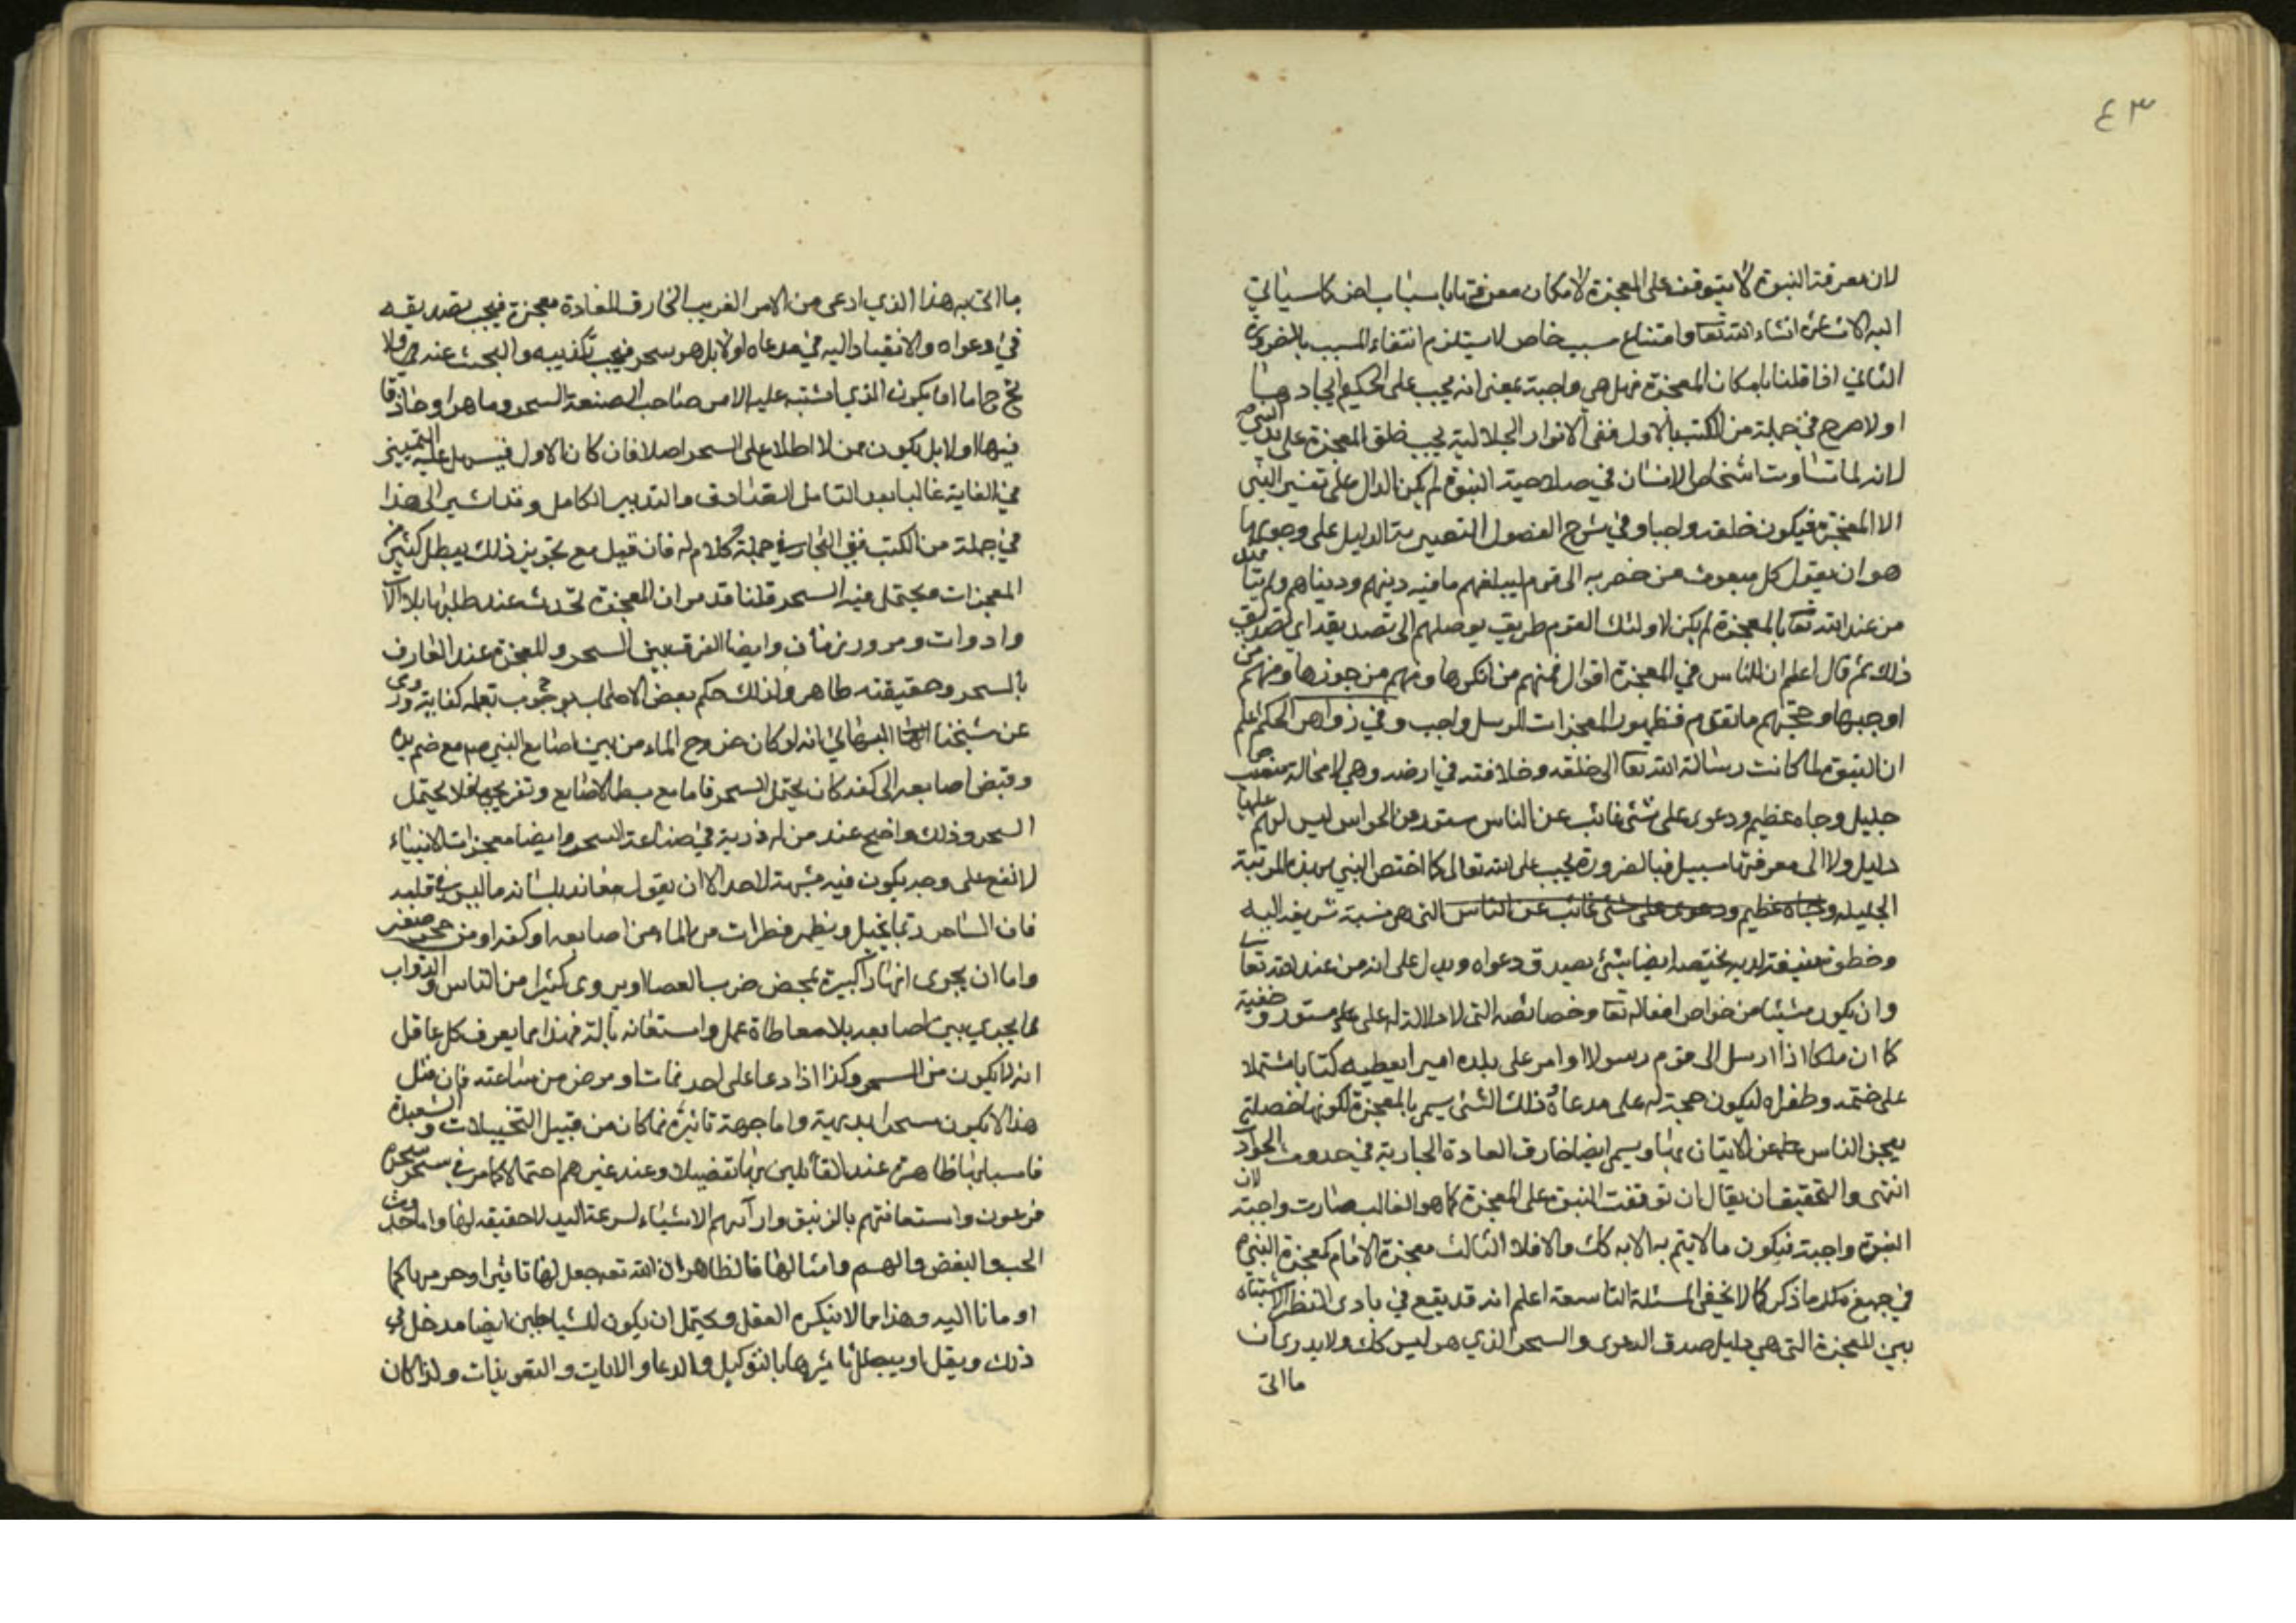 ٤٣
لان معرفة النبوة لا يتوقف على المعجزة لامكان معرفتها باسباب اخر كما سياتي
اليه الاشارة انشاء الله تعا وامتناع سبب خاص لا يستلزم انتفاء المسبب بالضرورة
الثاني اذا قلنا بامكان المعجزة فهل هي واجبة بمعنى انه يجب على الحكيم ايجادها
او لا صرح في جملة من الكتب بالاول ففي الانوار الجلالية يجب خلق المعجزة على يد النبي ص
لانه لما تساوت اشخاص الانسان في صلاحية النبوة لم يكن الدال على تعيين النبي
الا المعجزة فيكون خلقه واجبا وفي شرح الفصول النصيرية الدليل على وجوبها
هو ان يقول كل مبعوث من حضر به الى قوم ليبلغهم ما فيه دينهم ودنياهم ولم يتا
من عند الله تعا بالمعجزة لم يكن لاولئك القوم طريق يوصلهم الى تصديقه اي تصديق
ذلك ثم قال اعلم ان للناس في المعجزة اقوال فمنهم من انكرها ومنهم من جوزها ومنهم من
اوجبها وحجتهم ما تقدم فظهور المعجزات للرسل واجب وفي زواهر الحكم اعلم
ان النبوة لما كانت رسالة الله تعا الى خلقه وخلافته في ارضه وهي لا محالة منصب
جليل وجاه عظيم ودعوى على شئ غائب عن الناس مستور من الحواس ليس لهم عليها
دليل ولا الى معرفتها سبيل فبالضرورة يجب على الله تعالى كما اختص النبي بهذه المرتبة
الجليلة وجاه عظيم ودعوى على شئ غائب عن الناس التي هي نسبة شريفة اليه
وخطوة منيفة لديه يختصه ايضا بشئ يصدق دعواه ويدل على انه من عند الله تعا
وان يكون شيئا من خواص افعاله تعا وخصائصه التي لا دلالة له على على مستور وخفية
كما ان ملكا اذا ارسل الى قوم رسولا او امر على بلده اميرا يعطيه كتابا مشتملا
على ختمه وطغراه ليكون حجة له على مدعاه وذلك الشئ يسمى بالمعجزة لكونها خصلة
يعجز الناس عن الاتيان بها ويسمى ايضا خارق العادة الجارية في حدوث الحوادث
انتهى والتحقيق ان يقال ان توقفت النبوة على المعجزة كما هو الغالب صارت واجبة لان
النبوة واجبة فيكون ما لا يتم به الا به كك والا فلا الثالث معجزة الامام كمعجزة النبي ص
في جميع ما ذكر كما لا يخفى المسئلة التاسعة اعلم انه قد يقع في بادي النظر الاشتباه
بين المعجزة التي هي دليل صدق الدعوى والسحر الذي هو ليس كك ولا يدرى ان
ما اتى
ما اتى به هذا الذي ادعى من الامر الغريب الخارق للعادة معجزة فيجب تصديقه
في دعواه والانقياد اليه في مدعاه او لا بل هو سحر فيجب تكذيبه والبحث عنه
ح اما ان يكون الذي اشتبه عليه الامر صاحب الصنعة السحر وماهرا وحاذقا
فيها او لا بل يكون ممن لا اطلاع على السحر اصلا فان كان الاول فيسهل عليه التمييز
في الغاية غالبا بعد التامل الصادق والتدبير الكامل وقد اشير الى هذا
في جملة من الكتب ففي البحار في جملة كلام له فان قيل مع تجويز ذلك يبطل كثير من
المعجزات ويحتمل فيه السحر قلنا قد مر ان المعجزة تحدث عند طلبها بلا الات
وادوات ومرور زمان وايضا الفرق بين السحر والمعجزة عند العارف
بالسحر وحقيقته ظاهر ولذلك حكم بعض الاصحاب بوجوب تعلمه كفاية وروى
عن شيخنا البهائي انه لو كان خروج الماء من بين اصابع النبي ص مع ضم يده
وقبض اصابعه الى كفه كان يحتمل السحر فاما مع بسط الاصابع وتفريجها فلا يحتمل
السحر وذلك واضح عند من له دربة في صناعة السحر وايضا معجزات الانبياء
لا تقع على وجه يكون فيه شبهة لاحد الا ان يقول معاند بلسانه ما ليس في قلبه
فان الساحر ربما يخيل ويظهر قطرات من الماء من اصابعه او كفه او من حجر صغير
واما ان يجرى انهار كبيرة بمحض ضرب العصا ويروى كثيرا من الناس والدواب
بما يجري بين اصابعه بلا معاطاة عمل واستعانة بالة فهذا مما يعرف كل عاقل
انه لا يكون من السحر وكذا اذا دعا على احد فمات او مرض من ساعته فان مثل
هذا لا يكون سحرا بديهية واما جهة تاثيره فما كان من قبيل التخييلات والشعبدة
فاسبابها ظاهرة عند القائلين بها تفضيلا وعند غيرهم احتمالا كما مر في سحر سحرة
فرعون واستعانتهم بالزيبق وارائهم الاشياء لسرعة اليد لا حقيقة لها واما حدوث
الحب والبغض والهم وامثالها فالظاهر ان الله تعه جعل لها تاثيرا وحرمها كما
او مانا اليه وهذا مما لا ينكره العقل ويحتمل ان يكون للشياطين ايضا مدخل في
ذلك ويقل او يبطل تاثيرها بالتوكيل والدعا والايات والتعويذات ولذا كان